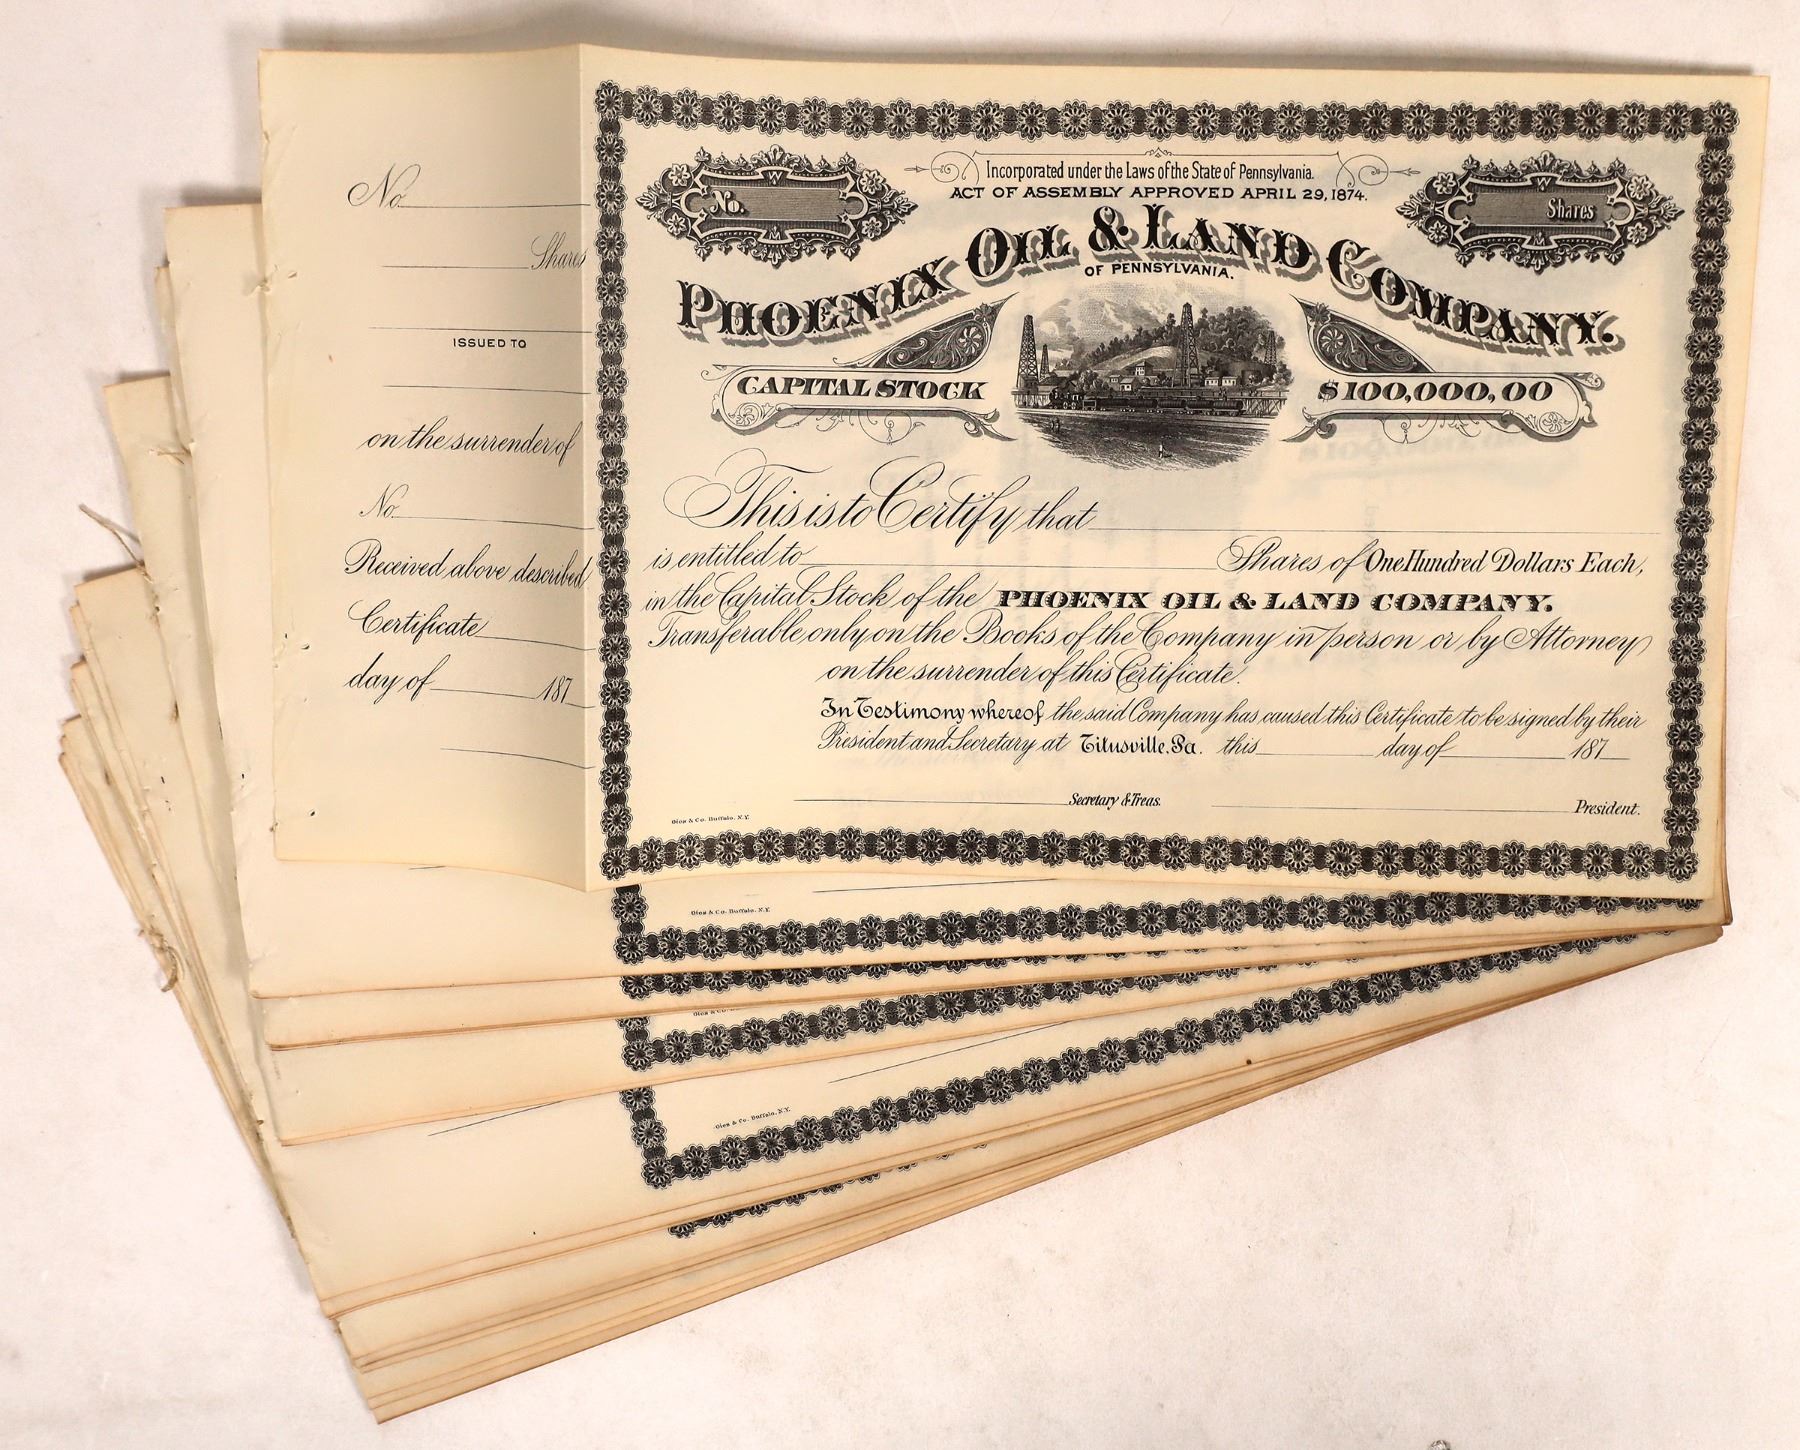 No
Shares
ISSUED TO
on the surrender of
No.
Received above described
Certificate
day of 187
No.
W
M
Incorporated under the Laws of the State of Pennsylvania.
ACT OF ASSEMBLY APPROVED APRIL 29, 1874.
Shares
W
M
PHOENIX OIL & LAND COMPANY.
OF PENNSYLVANIA.
CAPITAL STOCK $100,000,00
This is to Certify that
is entitled to Shares of One Hundred Dollars Each,
in the Capital Stock of the PHOENIX OIL & LAND COMPANY.
Transferable only on the Books of the Company in person or by Attorney
on the surrender of this Certificate.
In Testimony whereof the said Company has caused this Certificate to be signed by their
President and Secretary at Titusville, Pa. this day of 187
Secretary & Treas. President.
Gies & Co. Buffalo, N.Y.
Gies & Co. Buffalo, N.Y.
Gies & Co.
Gies & Co. Buffalo, N.Y.